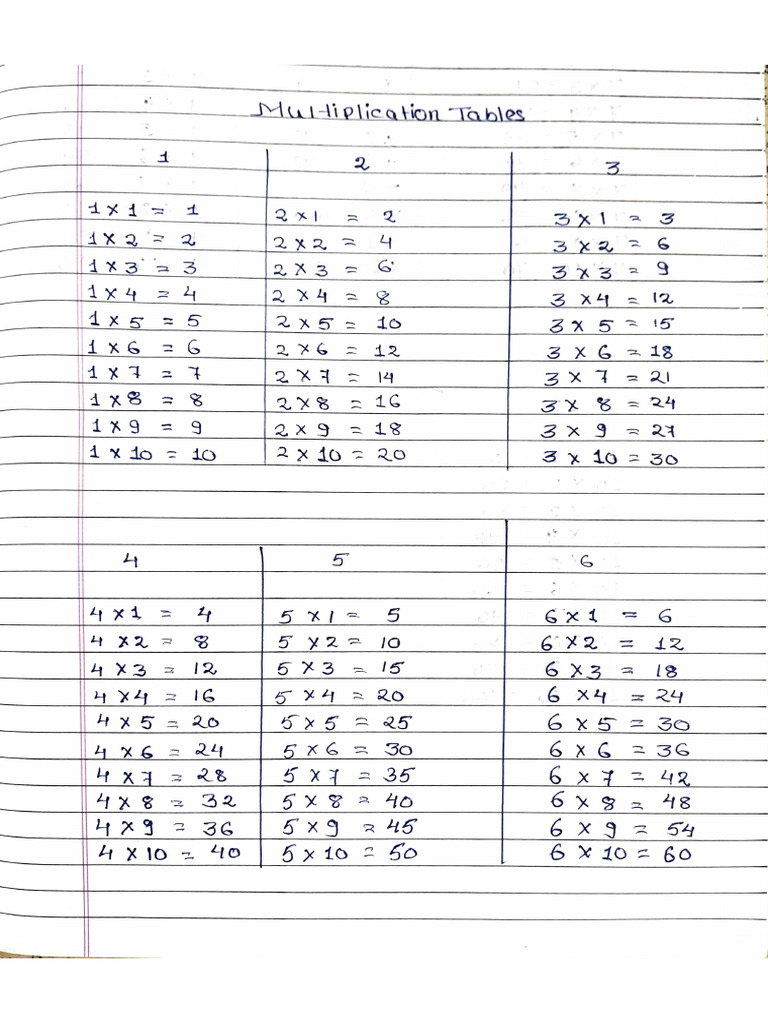 Multiplication Tables
1 2 3
1 × 1 = 1 2 × 1 = 2 3 × 1 = 3
1 × 2 = 2 2 × 2 = 4 3 × 2 = 6
1 × 3 = 3 2 × 3 = 6 3 × 3 = 9
1 × 4 = 4 2 × 4 = 8 3 × 4 = 12
1 × 5 = 5 2 × 5 = 10 3 × 5 = 15
1 × 6 = 6 2 × 6 = 12 3 × 6 = 18
1 × 7 = 7 2 × 7 = 14 3 × 7 = 21
1 × 8 = 8 2 × 8 = 16 3 × 8 = 24
1 × 9 = 9 2 × 9 = 18 3 × 9 = 27
1 × 10 = 10 2 × 10 = 20 3 × 10 = 30
4 5 6
4 × 1 = 4 5 × 1 = 5 6 × 1 = 6
4 × 2 = 8 5 × 2 = 10 6 × 2 = 12
4 × 3 = 12 5 × 3 = 15 6 × 3 = 18
4 × 4 = 16 5 × 4 = 20 6 × 4 = 24
4 × 5 = 20 5 × 5 = 25 6 × 5 = 30
4 × 6 = 24 5 × 6 = 30 6 × 6 = 36
4 × 7 = 28 5 × 7 = 35 6 × 7 = 42
4 × 8 = 32 5 × 8 = 40 6 × 8 = 48
4 × 9 = 36 5 × 9 = 45 6 × 9 = 54
4 × 10 = 40 5 × 10 = 50 6 × 10 = 60